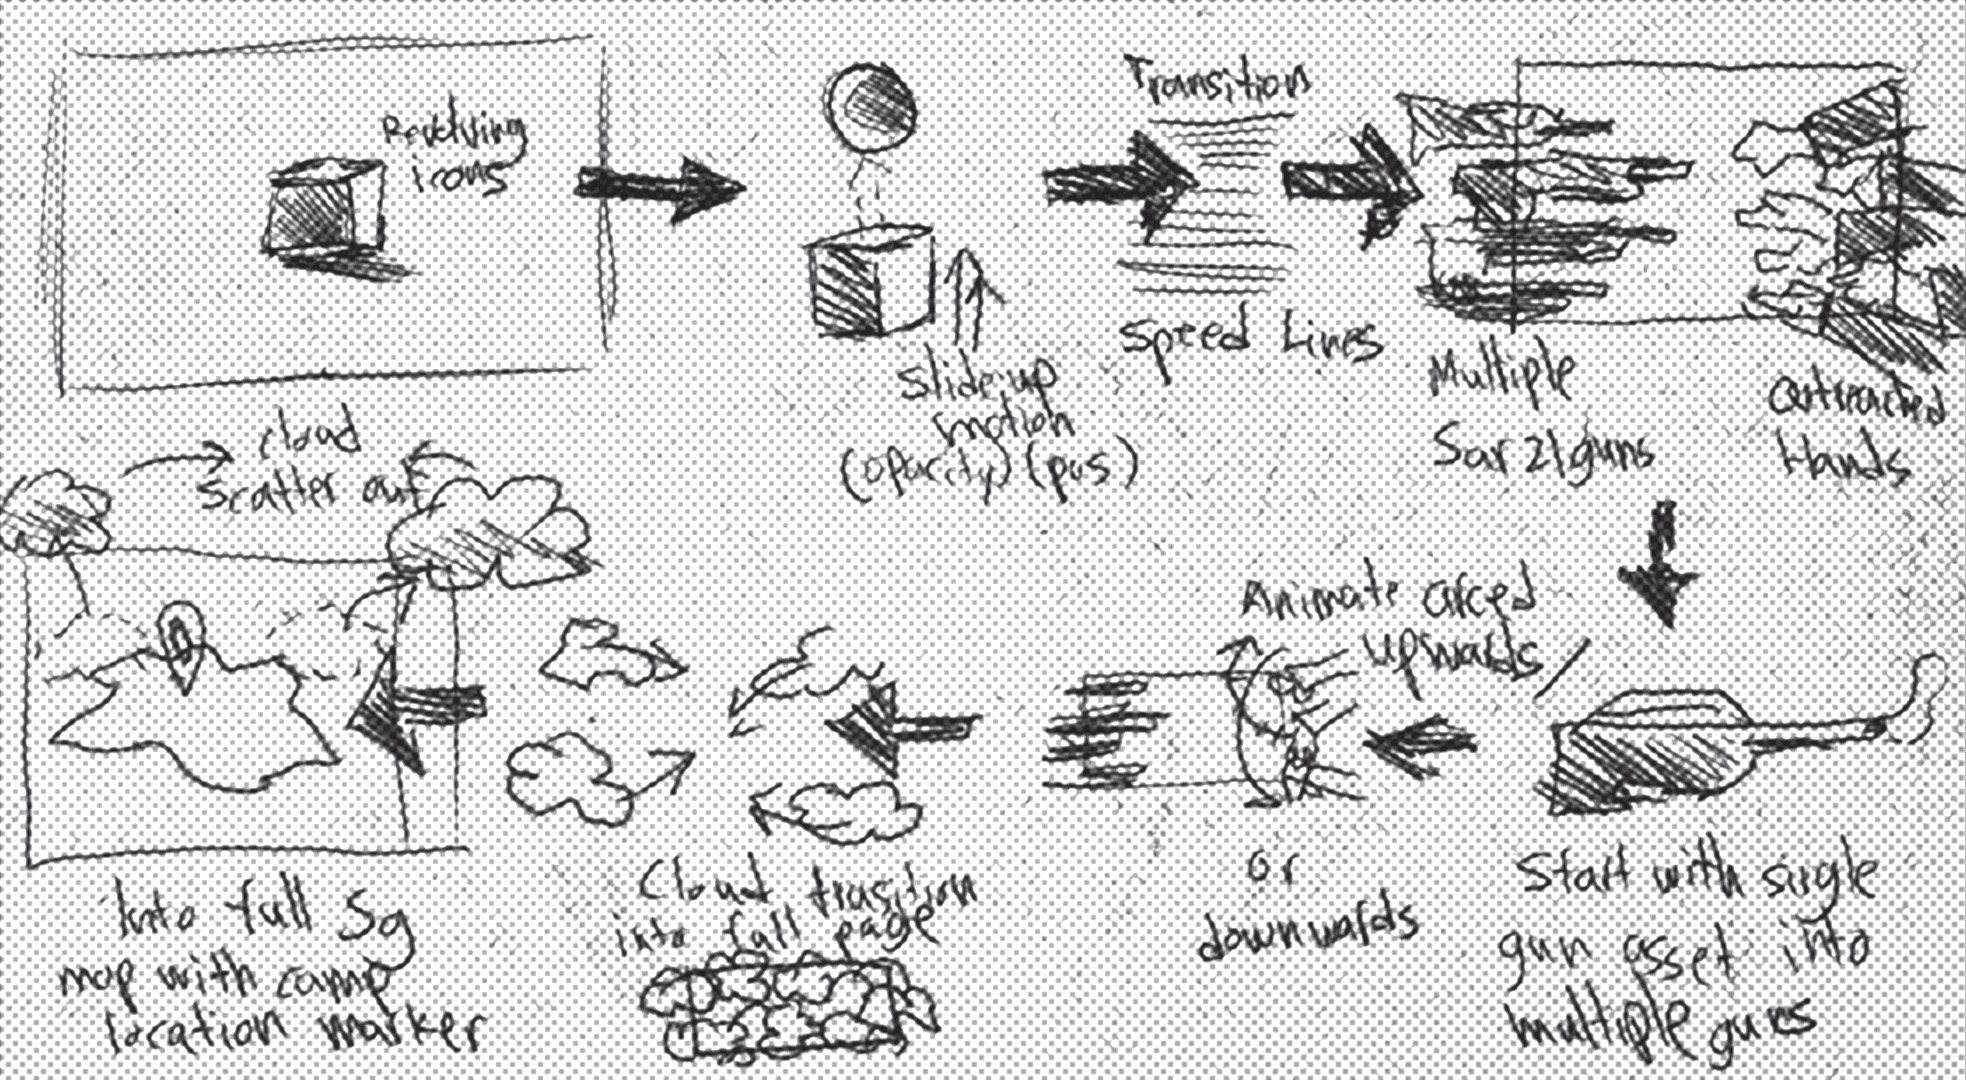 Revolving
icons
Slide up
motion
(opacity) (pos)
Transition
Speed Lines
Multiple
Sar 21 guns
Outreached
Hands
Start with single
gun asset into
multiple guns
Animate arced
upwards /
or
downwards
Cloud trasition
into full page
cloud
scatter out
Into full Sg
map with camp
location marker